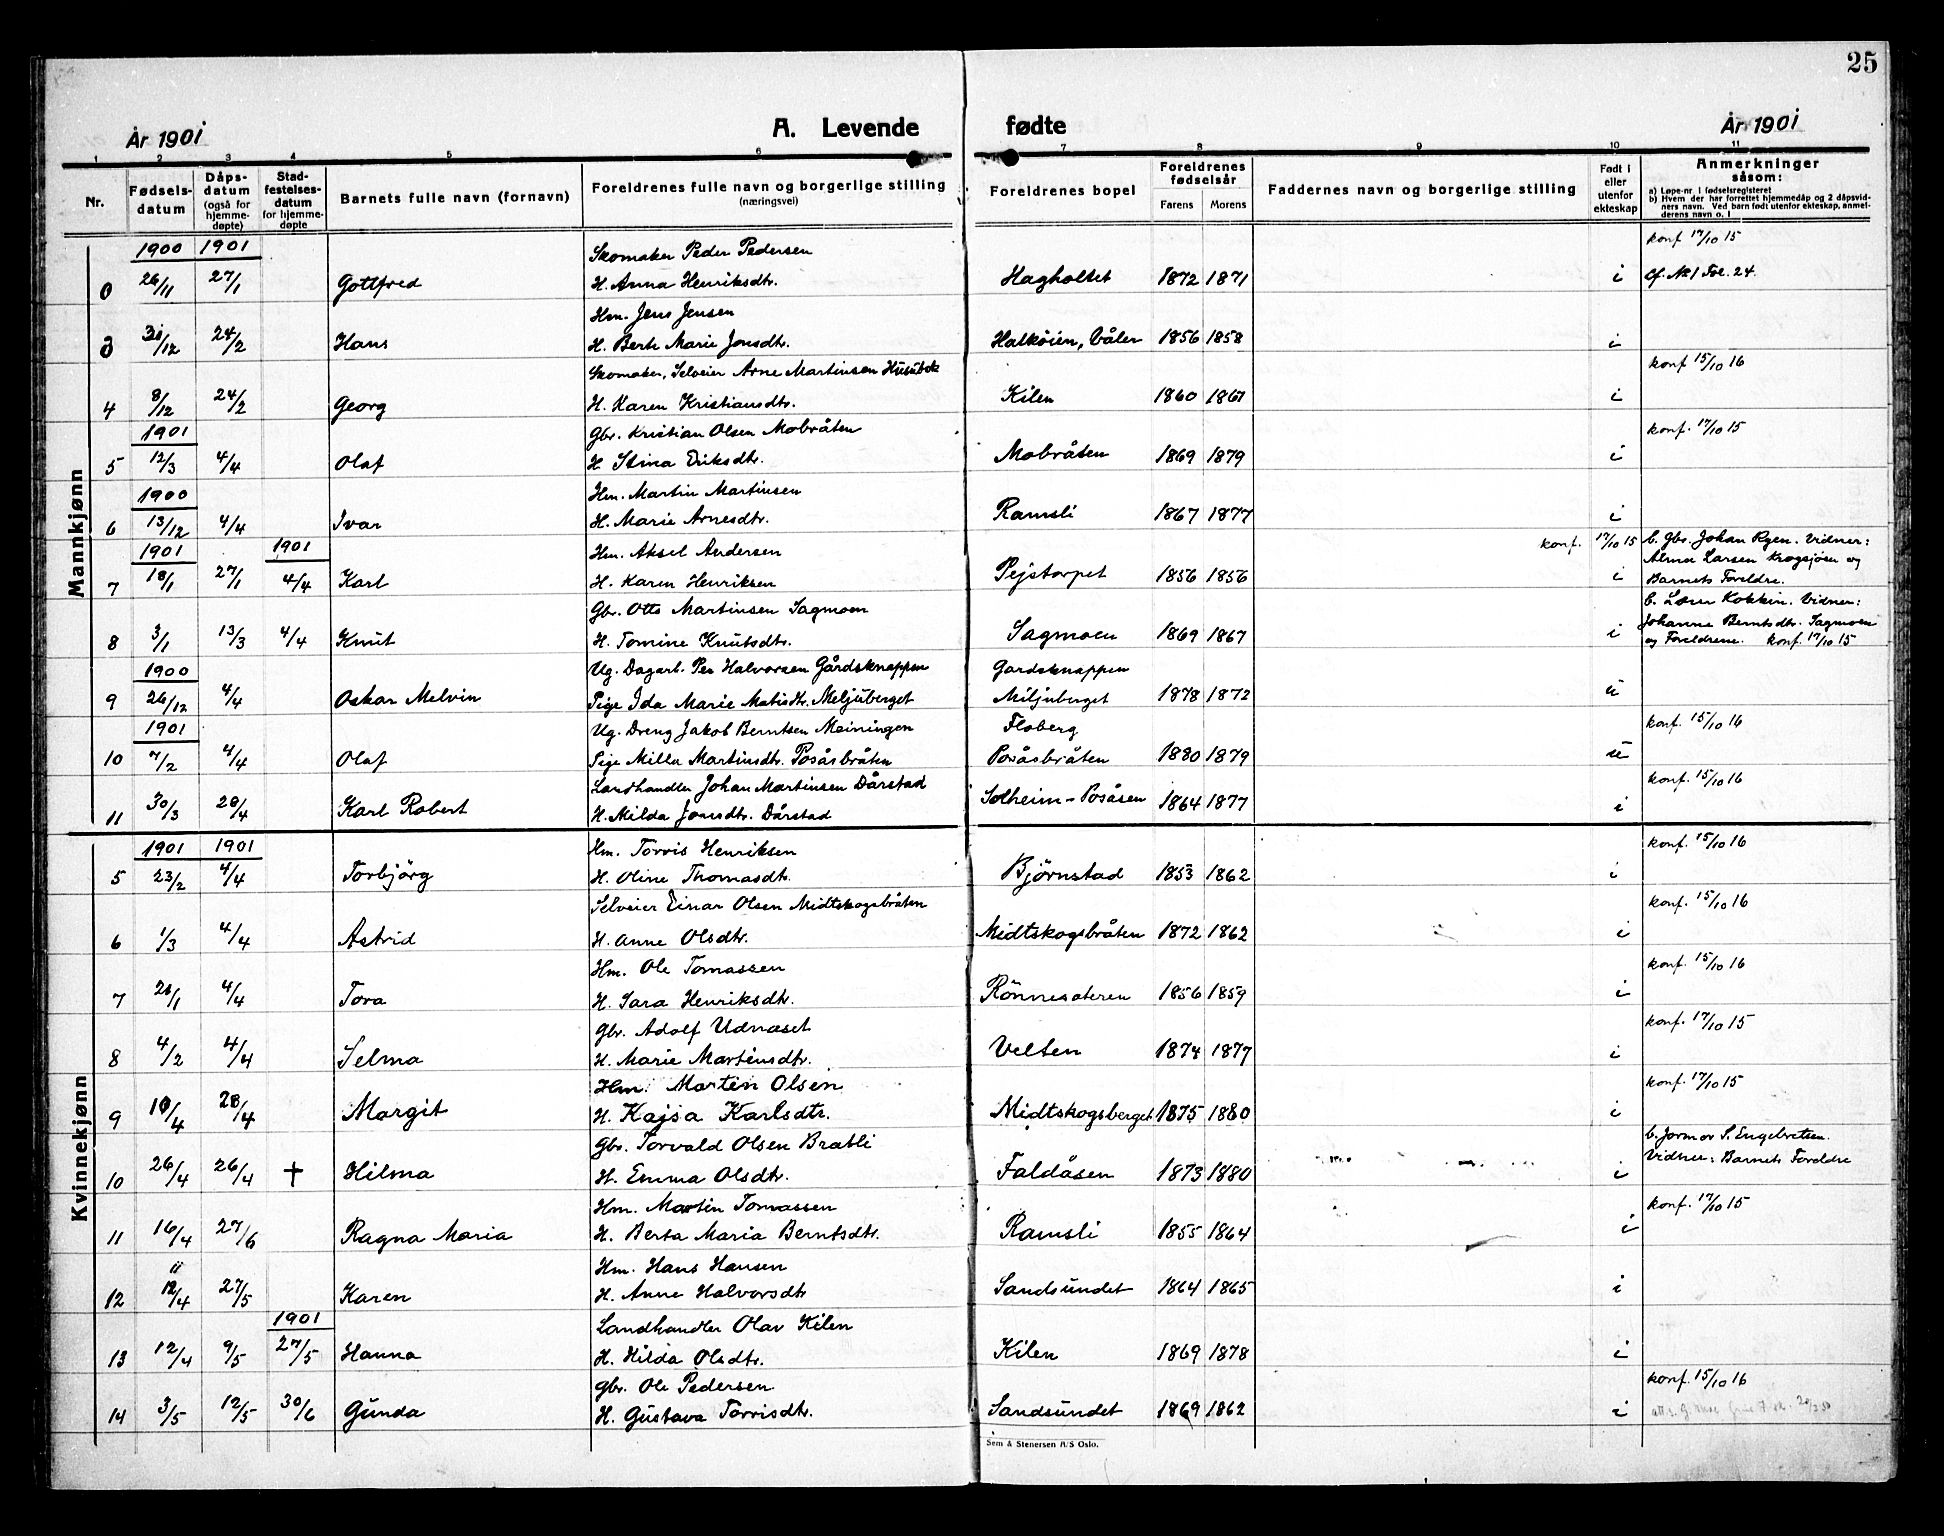 25
År 1901
A. Levende
fødte
År 1901
1 2 3 4 5 6 7 8 9 10 11
Nr.
Fødsels-
datum
Dåps-
datum
(også for
hjemme-
døpte)
Stad-
festelses-
datum
for hjemme-
døpte
Barnets fulle navn (fornavn)
Foreldrenes fulle navn og borgerlige stilling
(næringsvei)
Foreldrenes bopel
Foreldrenes
fødselsår
Farens Morens
Faddernes navn og borgerlige stilling
Født i
eller
utenfor
ekteskap
Anmerkninger
såsom:
a) Løpe-nr. i fødselsregisteret
b) Hvem der har forrettet hjemmedåp og 2 dåpsvid-
ners navn. Ved barn født utenfor ekteskap, anmel-
derens navn o. l
Mannkjønn
1900 1901 Skomaker Peder Pedersen konf 17/10 15
26/11 27/1 Gottfred H. Anna Henriksdtr. Hagholtet 1872 1871 i cf. No 1 Fol. 24.
Hm. Jens Jensen
31/12 24/2 Hans H. Berte Marie Jonsdtr. Halköien, Våler 1856 1858 i
Skomaker, Selveier Arne Martinsen konf 15/10 16
4 8/12 24/2 Georg H. Karen Kristiansdtr. Kilen 1860 1867 i
1901 Gbr. Kristian Olsen Mobråten konf. 17/10 15
5 12/3 4/4 Olaf H. Stina Eriksdtr. Mobråten 1869 1879 i
1900 Hm. Martin Martinsen
6 13/12 4/4 Ivar H. Marie Arnesdtr. Ramsli 1867 1877 i
1901 1901 Hm. Aksel Andersen konf. 17/10 15 b. Gbr. Johan Ryen. Vidner:
7 18/1 27/1 4/4 Karl H. Karen Henriksen Pejstorpet 1856 1856 i Larsen Krogsjøen og
Barnets Foreldre.
Gbr. Otto Martinsen Sagmoen b. Kokkin. Vidner:
8 3/1 13/3 4/4 Knut H. Tomine Knutsdtr. Sagmoen 1869 1867 i Johanne Berntsdtr. Sagmoen
og Foreldrene. konf. 17/10 15
1900 Ug. Dagarb. Per Halvorsen Gårdsknappen Gardsknappen
9 26/12 4/4 Oskar Melvin Pige Ida Marie Matisdtr. Meljuberget Miljuberget 1878 1872 u
1901 Ug. Dreng Jakob Berntsen Meiningen Floberg konf. 15/10 16
10 7/2 4/4 Olaf Pige Milla Martinsdtr. Posåsbråten Posåsbråten 1880 1879 u
Landhandler Johan Martinsen Dårstad konf. 15/10 16
11 30/3 28/4 Karl Robert H. Milda Jonsdtr. Dårstad Solheim - Posåsen 1864 1877 i
Kvinnekjønn
1901 1901 Hm. Torris Henriksen konf. 15/10 16
5 23/2 4/4 Torbjörg H. Oline Thomasdtr. Björnstad 1853 1862 i
Selveier Einar Olsen Midtskogsbråten konf. 15/10 16
6 1/3 4/4 Astrid H. Anne Olsdtr. Midtskogsbråten 1872 1862 i
Hm. Ole Tomassen konf. 15/10 16
7 4/4 Tora H. Sara Henriksdtr. Rönnesæteren 1856 1859 i
Gbr. Adolf Udnæset konf. 17/10 15
8 4/2 4/4 Selma H. Marie Martinsdtr. Velten 1874 1877 i
Hm. Martin Olsen konf. 17/10 15
9 10/4 28/4 Margit H. Kajsa Karlsdtr. Midtskogsberget 1875 1880 i
Gbr. Torvald Olsen Bratli b. Jormor S. Engebretsen.
10 26/4 26/4 † Hilma H. Emma Olsdtr. Faldåsen 1873 1880 i Vidner: Barnets Foreldre
Hm. Martin Tomassen konf. 17/10 15
11 16/4 27/6 Ragna Maria H. Berta Maria Berntsdtr. Ramsli 1855 1864 i
Hm. Hans Hansen
12 12/4 27/5 Karen H. Anne Halvorsdtr Sandsundet 1864 1865 i
1901 Landhandler Olav Kilen
13 12/4 9/5 27/5 Hanna H. Hilda Olsdtr. Kilen 1869 1878 i
Gbr. Ole Pedersen konf. 15/10 16
14 3/5 12/5 30/6 Gunda H. Gustava Torrisdtr. Sandsundet 1869 1862 i
Sem & Stenersen A/S Oslo.